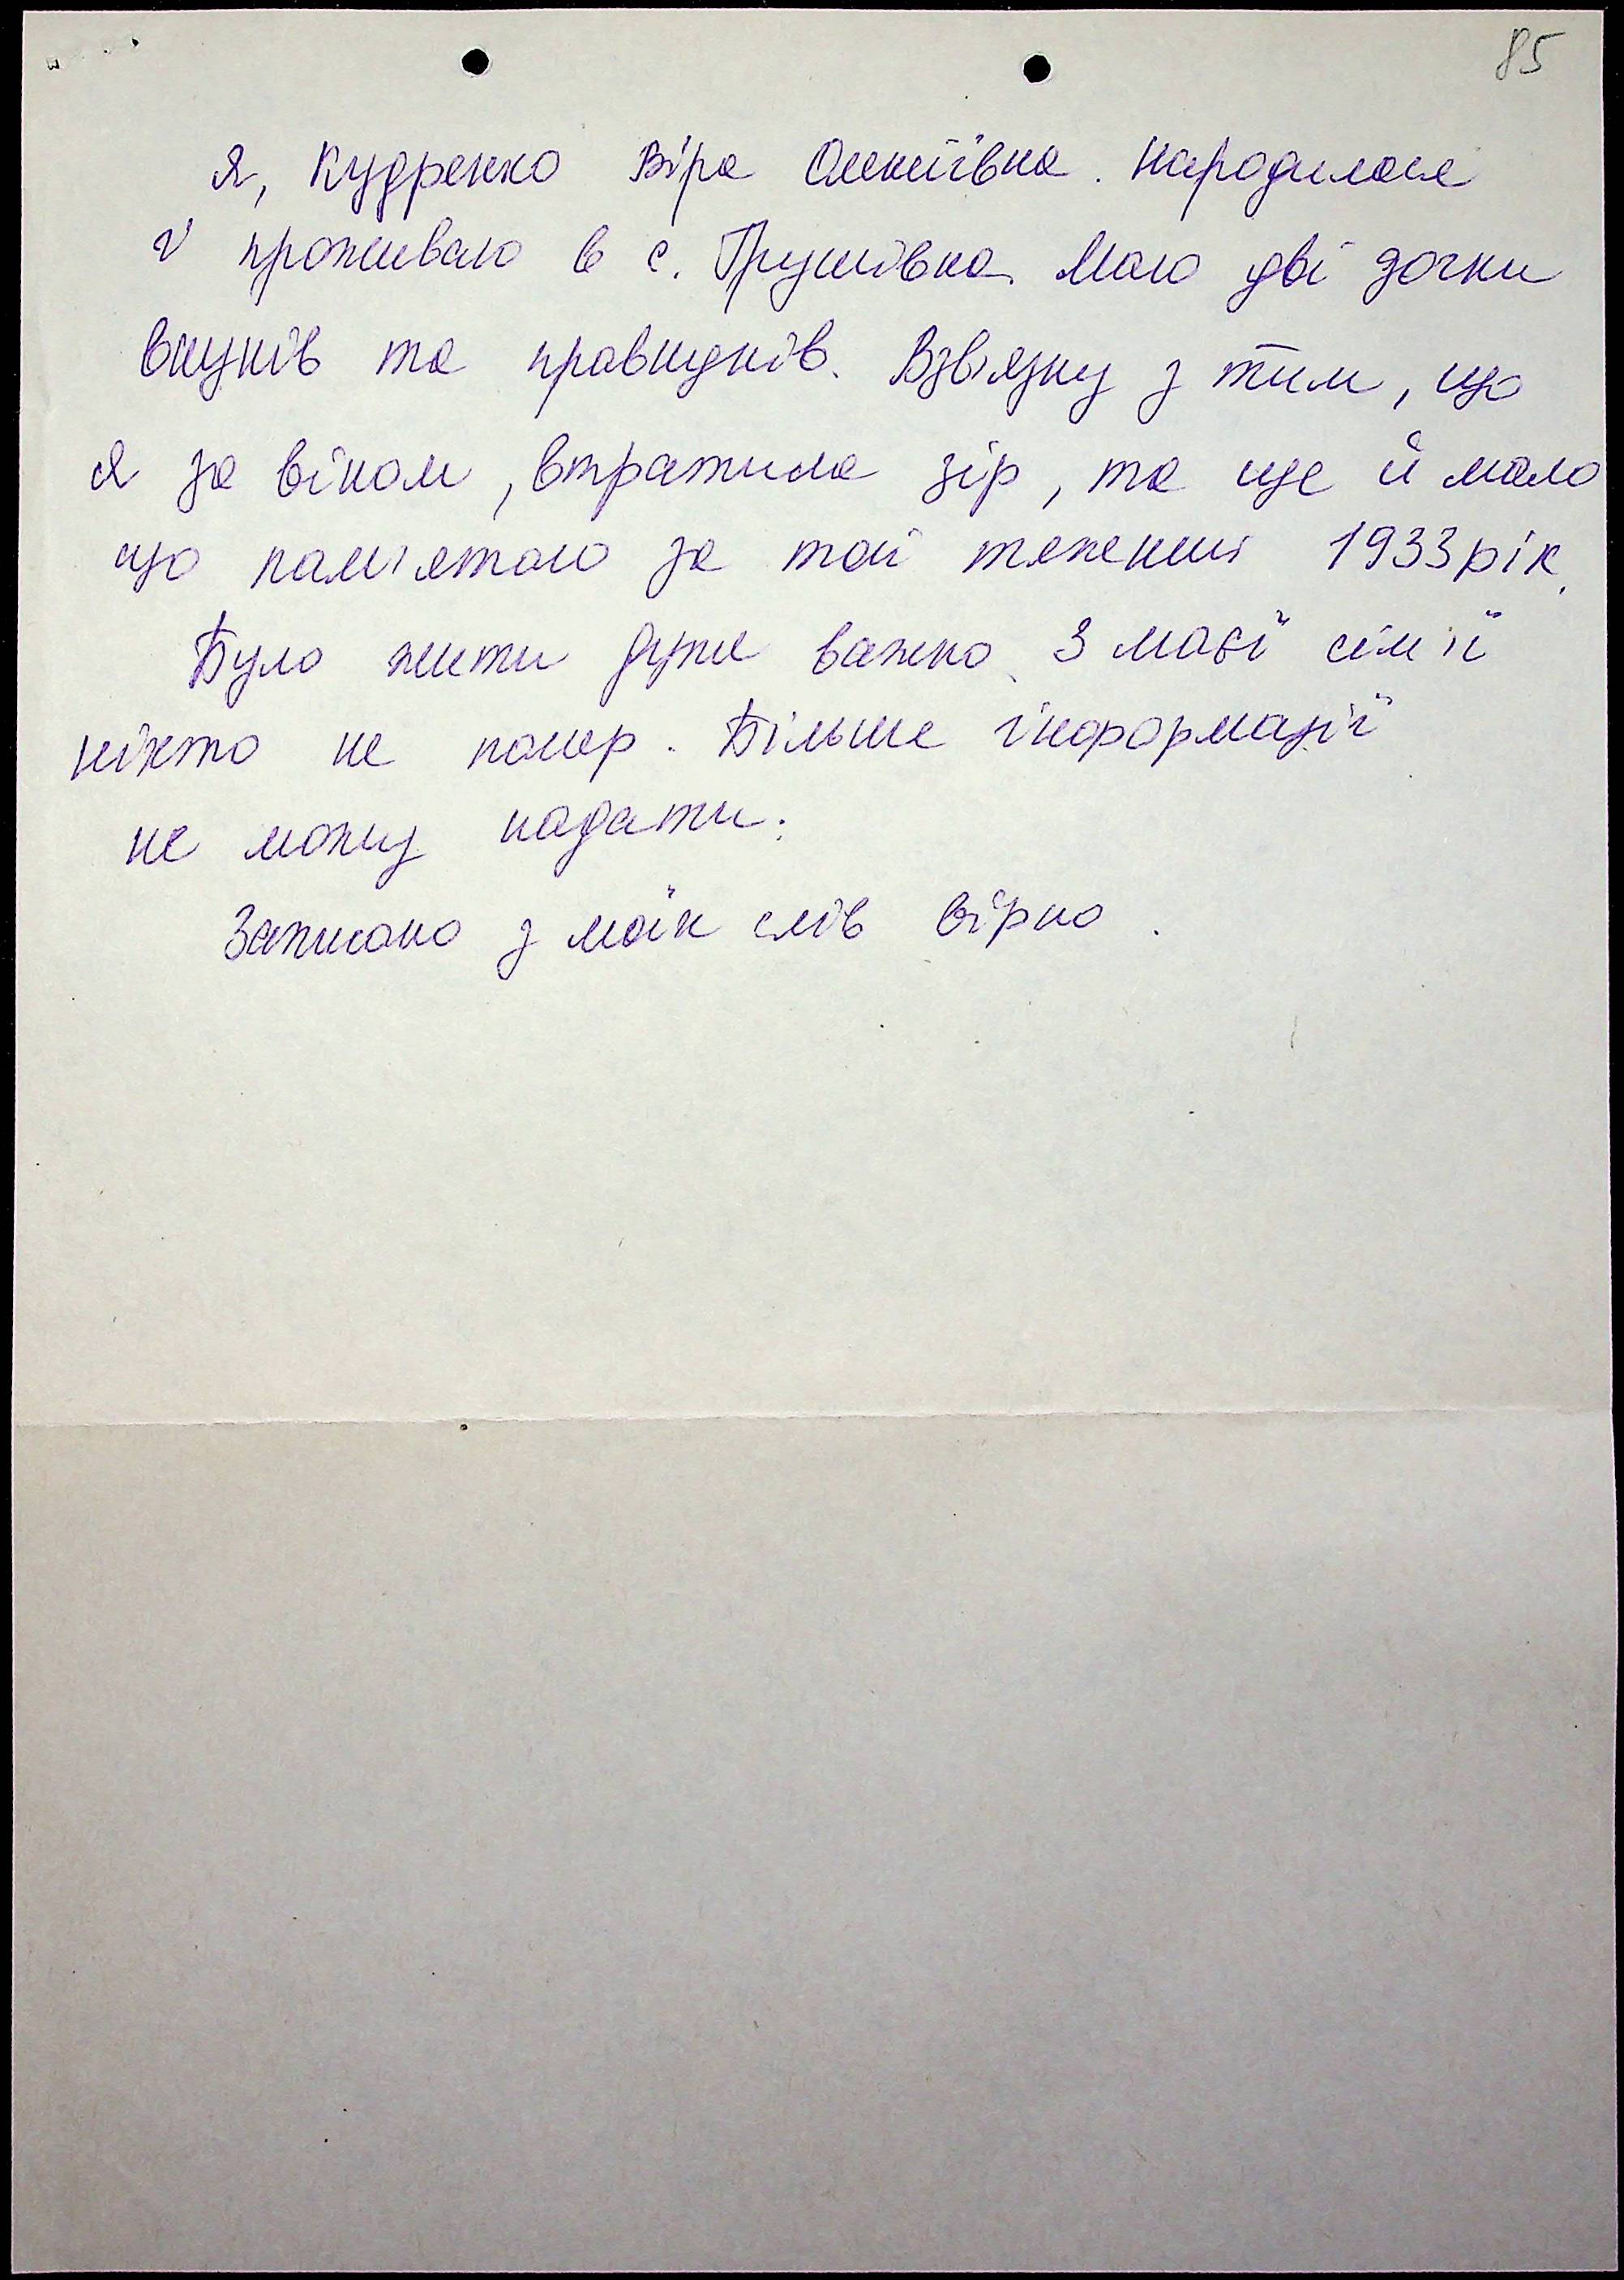 85
Я, Кудренко Віра Олексіївна. Народилася
і проживаю в с. Грушівка. Маю дві дочки
внуків та правнуків. Взв'язку з тим, що
я за віком, втратила зір, та ще й мало
що пам'ятаю за той тяжкий 1933 рік.
Було жити дуже важко. З моєї сім'ї
ніхто не помер. Більше інформації
не можу надати.
Записано з моїх слів вірно.